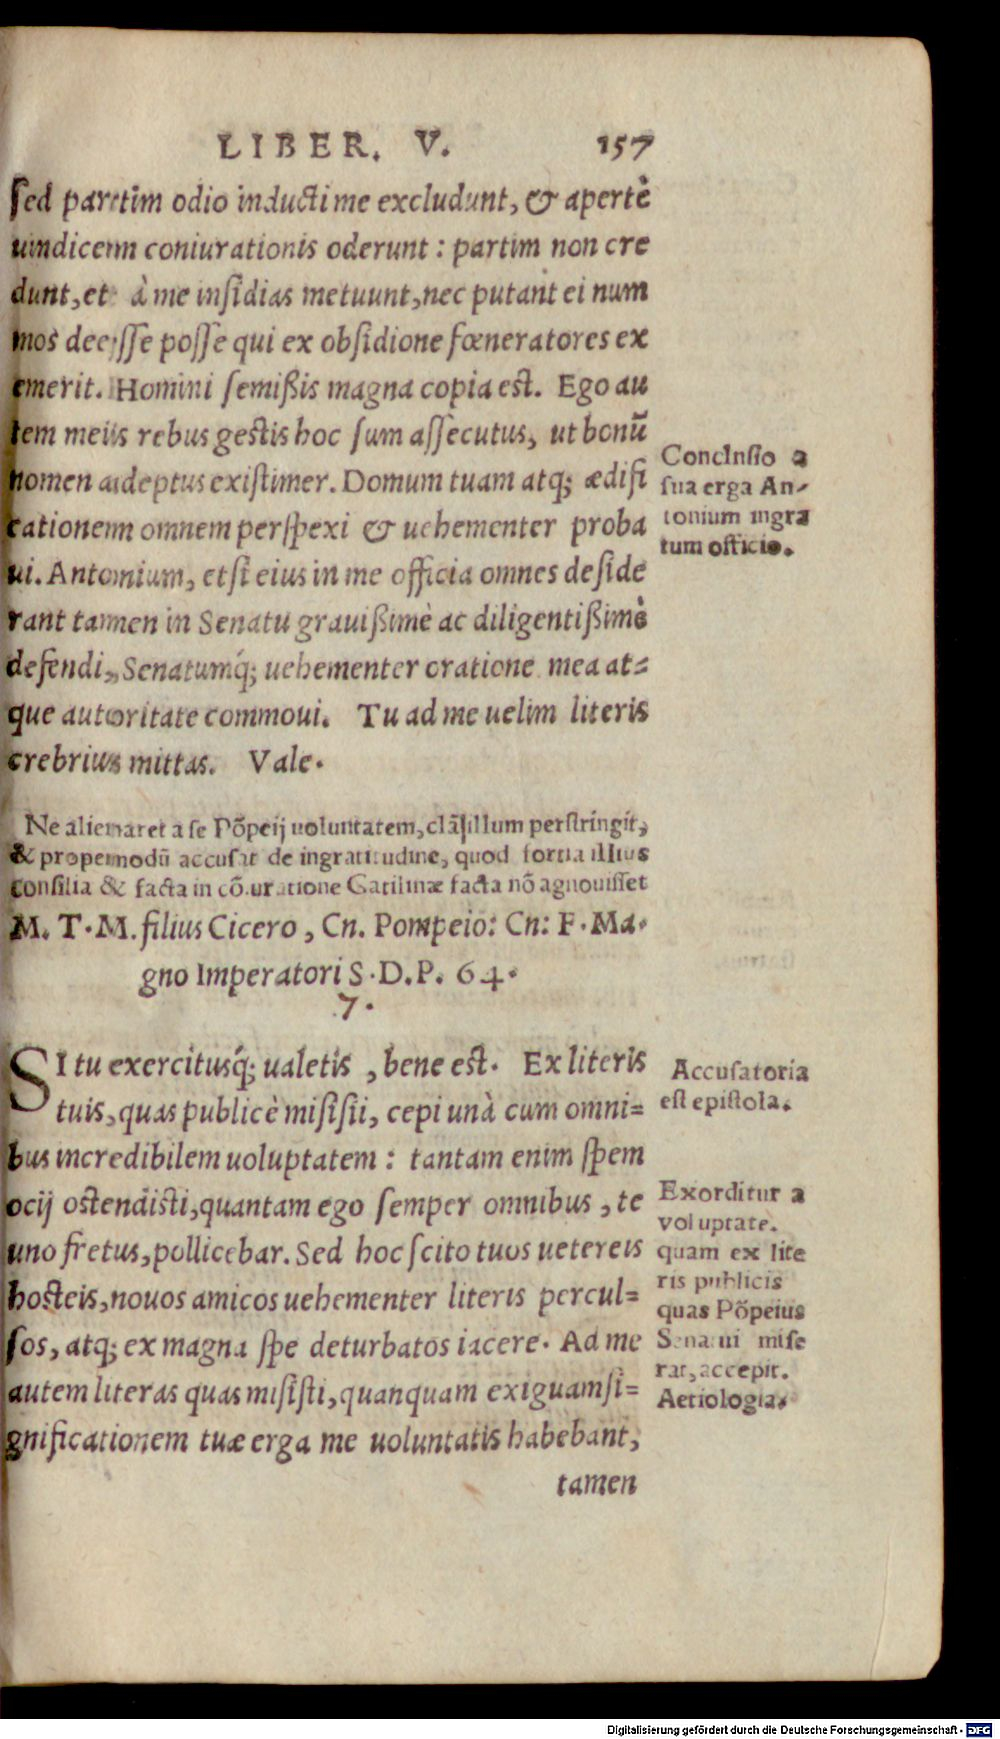 LIBER. V. 157
sed partim odio inducti me excludunt, & apertè
uindicem coniurationis oderunt : partim non cre
dunt, et à me insidias metuunt, nec putant ei num
mos deesse posse qui ex obsidione fœneratores ex
emerit. Homini semißis magna copia est. Ego au
tem meis rebus gestis hoc sum assecutus, ut bonũ
nomen adeptus existimer. Domum tuam atq; ædifi
cationem omnem perspexi & uehementer proba
ui. Antonium, etsi eius in me officia omnes deside
rant tamen in Senatu grauißimè ac diligentißimè
defendi, Senatumq́; uehementer oratione mea at=
que autoritate commoui. Tu ad me uelim literis
crebrius mittas. Vale.
Conclnsio a
sua erga An-
tonium ingra
tum officio.
Ne alienaret a se Põpeij uoluntatem, clã illum perstringit,
& propemodũ accusat de ingratitudine, quod fortia illius
consilia & facta in cõiuratione Catilinæ facta nõ agnouisset
M. T. M. filius Cicero, Cn. Pompeio: Cn: F. Ma-
gno Imperatori S. D. P. 64.
7.
SI tu exercitusq́; ualetis , bene est. Ex literis
tuis, quas publicè misisti, cepi unà cum omni=
bus incredibilem uoluptatem : tantam enim spem
ocij ostendisti, quantam ego semper omnibus , te
uno fretus, pollicebar. Sed hoc scito tuos uetereis
hosteis, nouos amicos uehementer literis percul=
sos, atq; ex magna spe deturbatos iacere. Ad me
autem literas quas misisti, quanquam exiguam si=
gnificationem tuæ erga me uoluntatis habebant,
tamen
Accusatoria
est epistola.
Exorditur a
voluptate.
quam ex lite
ris publicis
quas Põpeius
Senatui mise
rat, accepit.
Aetiologia.
Digitalisierung gefördert durch die Deutsche Forschungsgemeinschaft - DFG